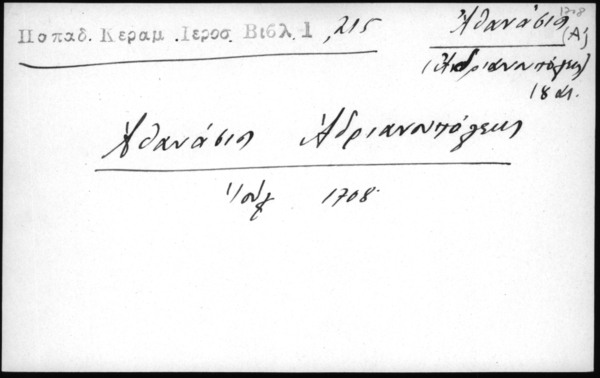 Παπαδ. Κεραμ. Ιεροσ. Βιβλ. 1, 215
1708
Ἀθανάσιος
(Α)
(Ἀνδριανουπόλεως)
18 αι.
Ἀθανάσιος Ἀδριανουπόλεως
Ἰούλ 1708